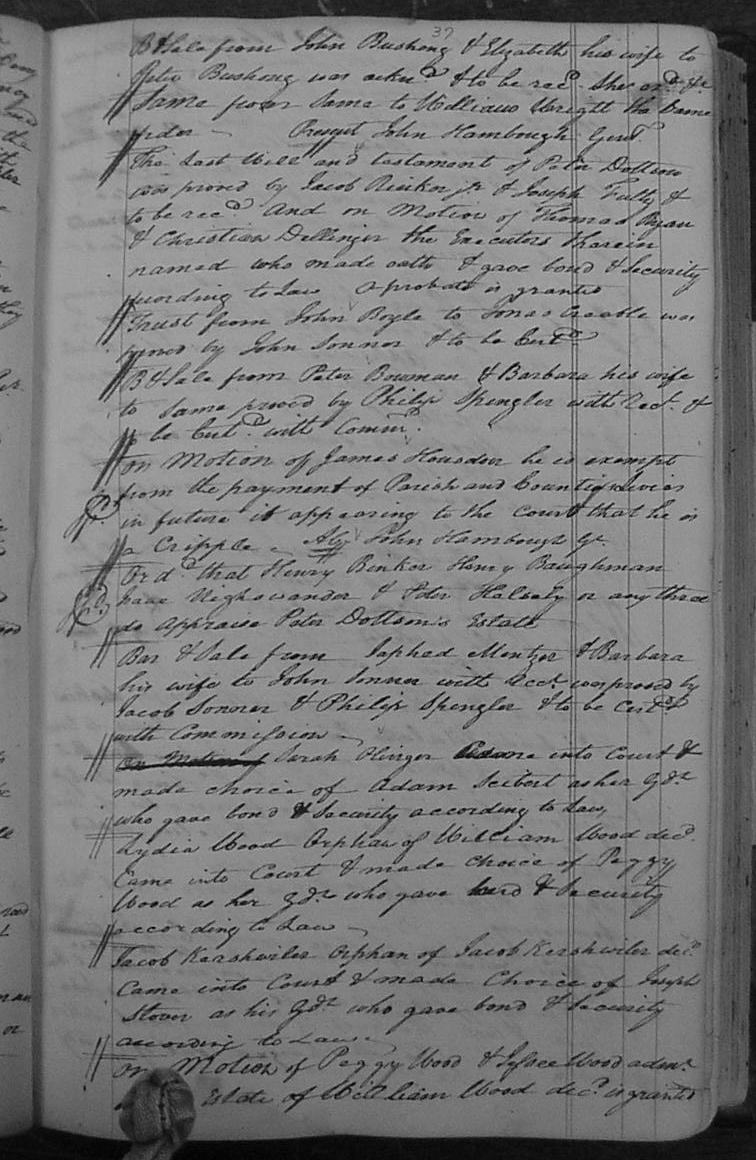 37
B & Sale from John Bushong & Elizabeth his wife to
Peter Bushong was ackd & to be recd. She exd &c
Same from Same to William Wright the Same
order Present John Hambough Gent.
The Last Will and testament of Peter Dottson
was proved by Jacob Rinker jr & Joseph Fultz &
to be recd. And on Motion of Thomas Ryan
& Christian Dellinger the Executors therein
named who made oath & gave bond & Security
according to Law a probate is granted
Trust from John Boyle to Jonas Creable was
proved by John Sonner & to be Certd
B & Sale from Peter Bowman & Barbara his wife
to Same proved by Philip Spengler with Rect. &
to be Certd. with Commn.
On Motion of James Housden he is exempt
from the payment of Parish and County levies
in future it appearing to the Court that he is
a Cripple. Abs John Hambough G.
Ord. that Henry Rinker Henry Baughman
Isaac Neghswander & Peter Halsely or any three
do Appraise Peter Dottson's Estate
Bar & Sale from Japhed Mentzer & Barbara
his wife to John Sonner with Rect. was proved by
Jacob Sonner & Philip Spengler & to be Certd
with Commission
On Motion of Sarah Olinger Came into Court &
made choice of Adam Seibert as her Gdn
who gave bond & Security according to Law,
Lydia Wood Orphan of William Wood decd.
Came into Court & made choice of Peggy
Wood as her Gdn. who gave bond & Security
according to Law
Jacob Kershwiler Orphan of Jacob Kershwiler decd
Came into Court & made Choice of Joseph
Stover as his Gdn who gave bond & Security
according to Law
On Motion of Peggy Wood & Wood admn.
Estate of William Wood decd. is granted